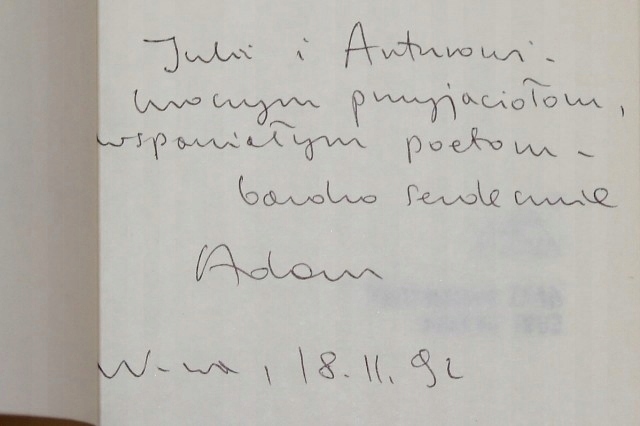 Julii i Arturowi -
uroczym przyjaciołom,
wspaniałym poetom -
bardzo serdecznie
Adam
W-wa, 18.11.92